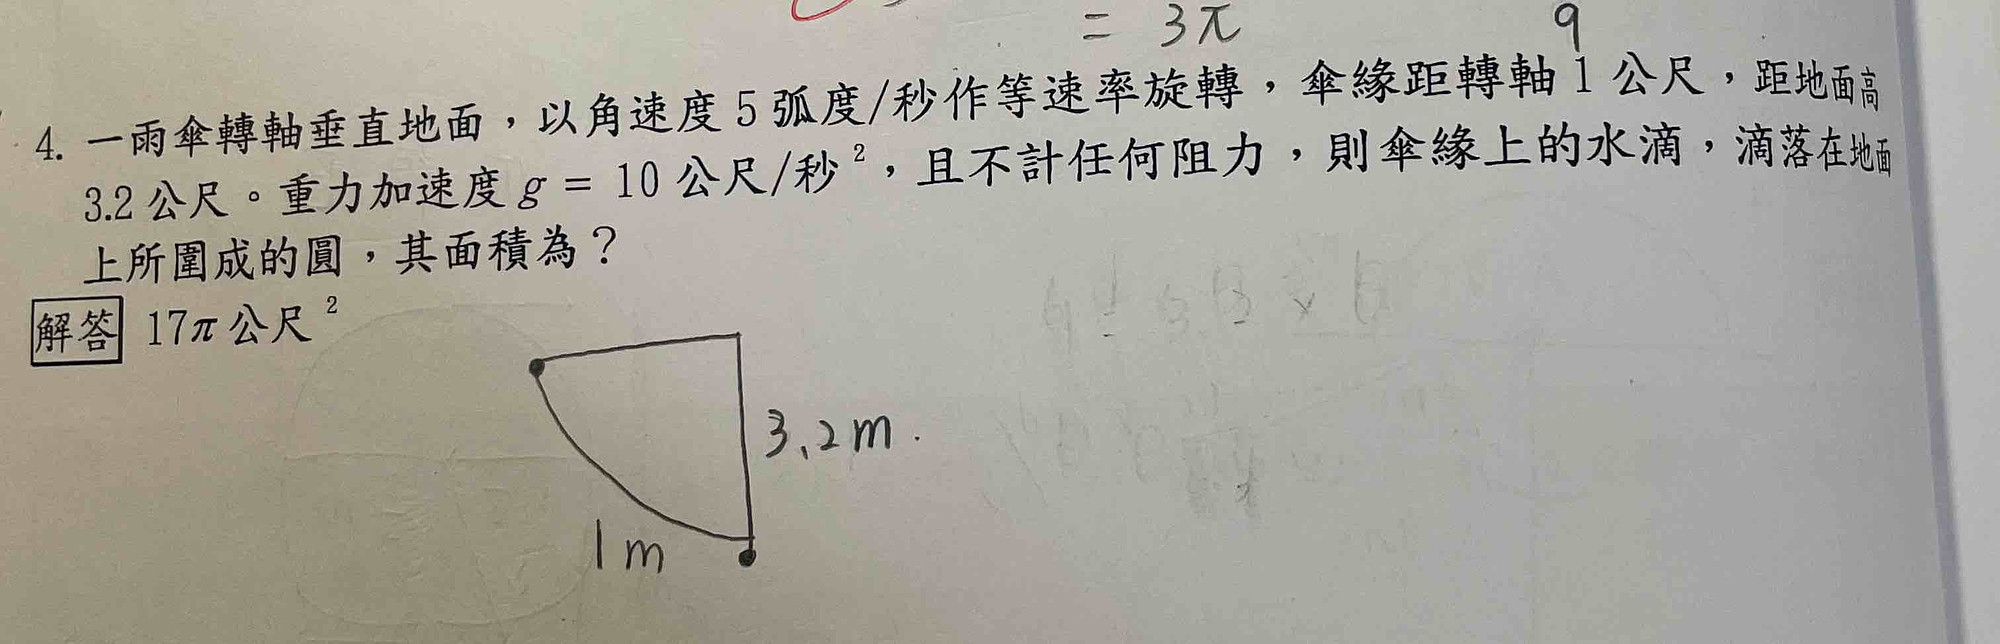 = 3π 9
4. 一雨傘轉軸垂直地面，以角速度 5 弧度/秒作等速率旋轉，傘緣距轉軸 1 公尺，距地面高
3.2 公尺。重力加速度 g = 10 公尺/秒²，且不計任何阻力，則傘緣上的水滴，滴落在地面
上所圍成的圓，其面積為？
解答 17π 公尺²
3.2m.
1m